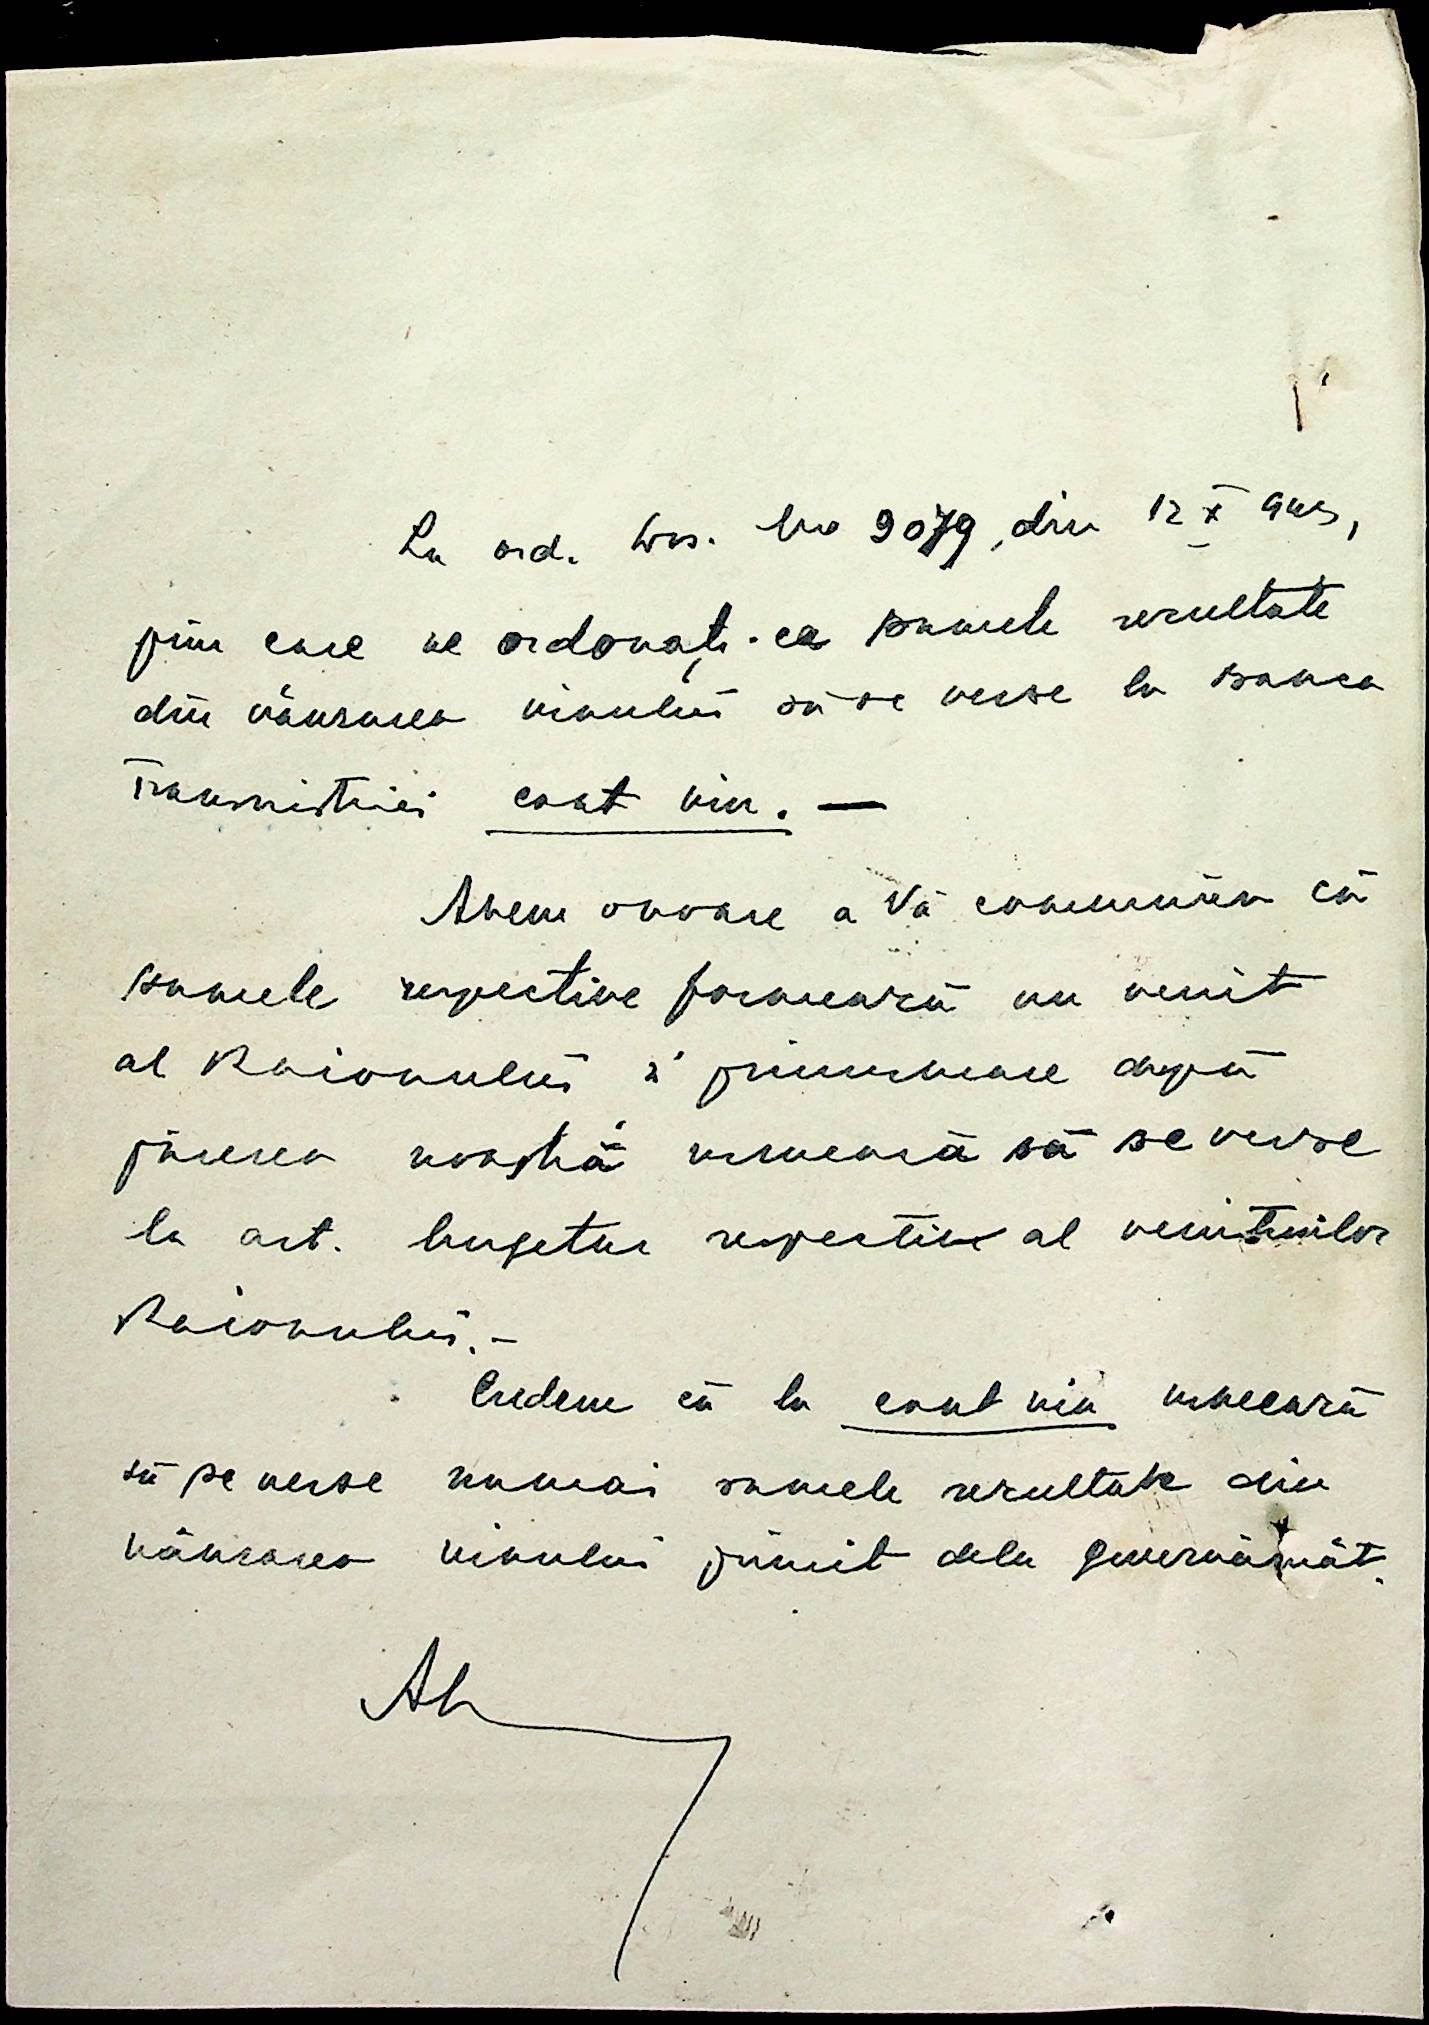 La ord. Dvs. No 9079, din 12 X 943,
prin care ne ordonați ca sumele rezultate
din vânzarea vinului să se verse la Banca
Transnistriei cont vin. —
Avem onoare a Vă comunica că
sumele respective formează un venit
al Raionului și prin urmare după
părerea noastră urmează să se verse
la art. bugetar respectiv al veniturilor
Raionului. -
Credem că la cont vin urmează
să se verse numai sumele rezultate din
vânzarea vinului primit dela Guvernământ.